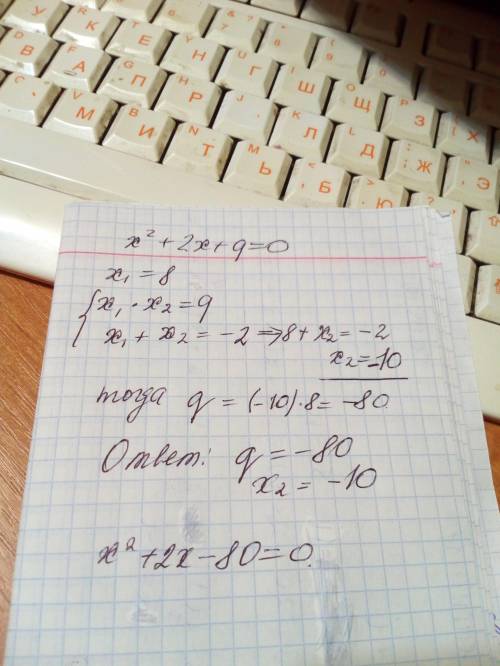 У К Е Н Г
В А П Р И Ш Щ З Х
М И Т Ь Л Д Ж Э
Б Ю
x² + 2x + q = 0
x₁ = 8
x₁ · x₂ = q
x₁ + x₂ = -2 ⇒ 8 + x₂ = -2
x₂ = -10
тогда q = (-10)·8 = -80
Ответ: q = -80
x₂ = -10
x² + 2x - 80 = 0.